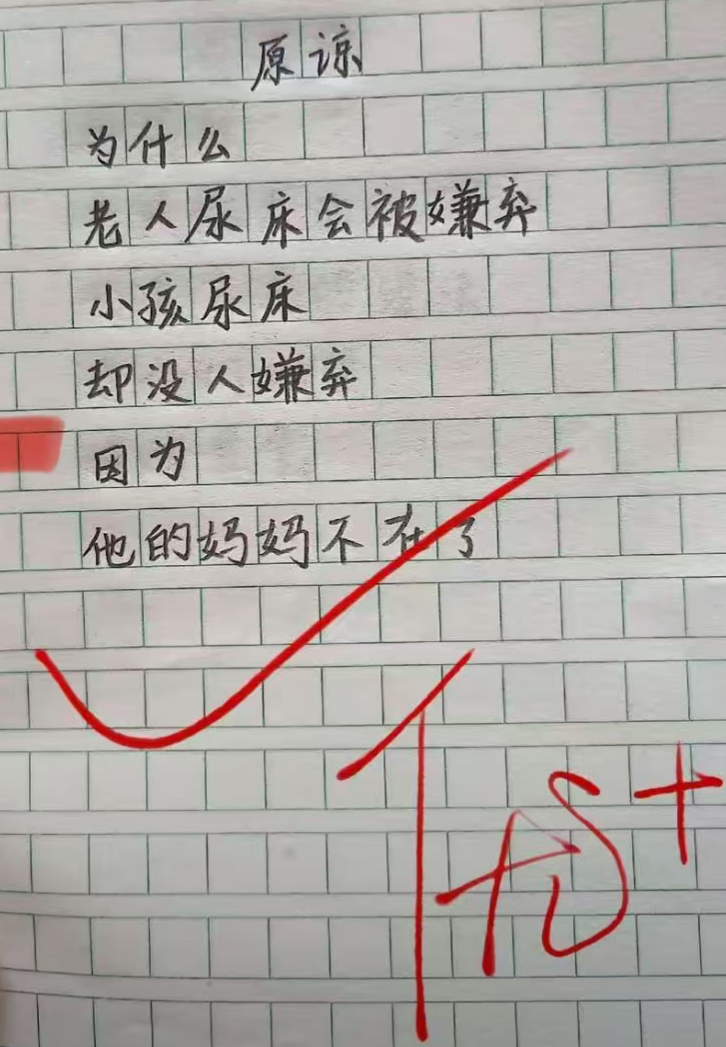 原谅
为什么
老人尿床会被嫌弃
小孩尿床
却没人嫌弃
因为
他的妈妈不在了